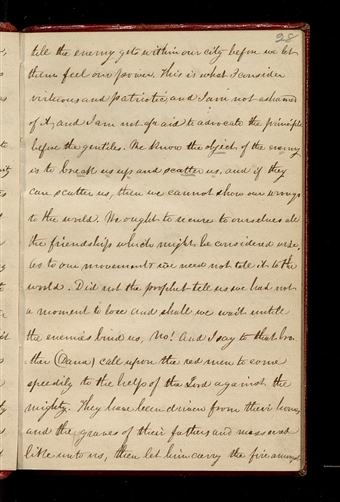 28
till the enemy gets within our city before we let
them feel our power. This is what I consider
virteous and patriotic, and I am not ashamed
of it, and I am not afraid to advocate the principle
before the gentiles. We know the object of the enemy
is to break us up and scatter us, and if they
can scatter us, then we cannot show our wrongs
to the world. We ought to secure to ourselves all
the friendship which might be considered wise.
As to our movements we need not tell it to the
world. Did not the prophet tell us we had not
a moment to lose and shall we wait untill
the enemies bind us, No! And I say to that bro-
ther (Dana) call upon the red men to come
speedily to the help of the Lord against the
mighty. They have been driven from their homes
and the graves of their fathers and massacred
like unto us, then let him carry the fire amongst